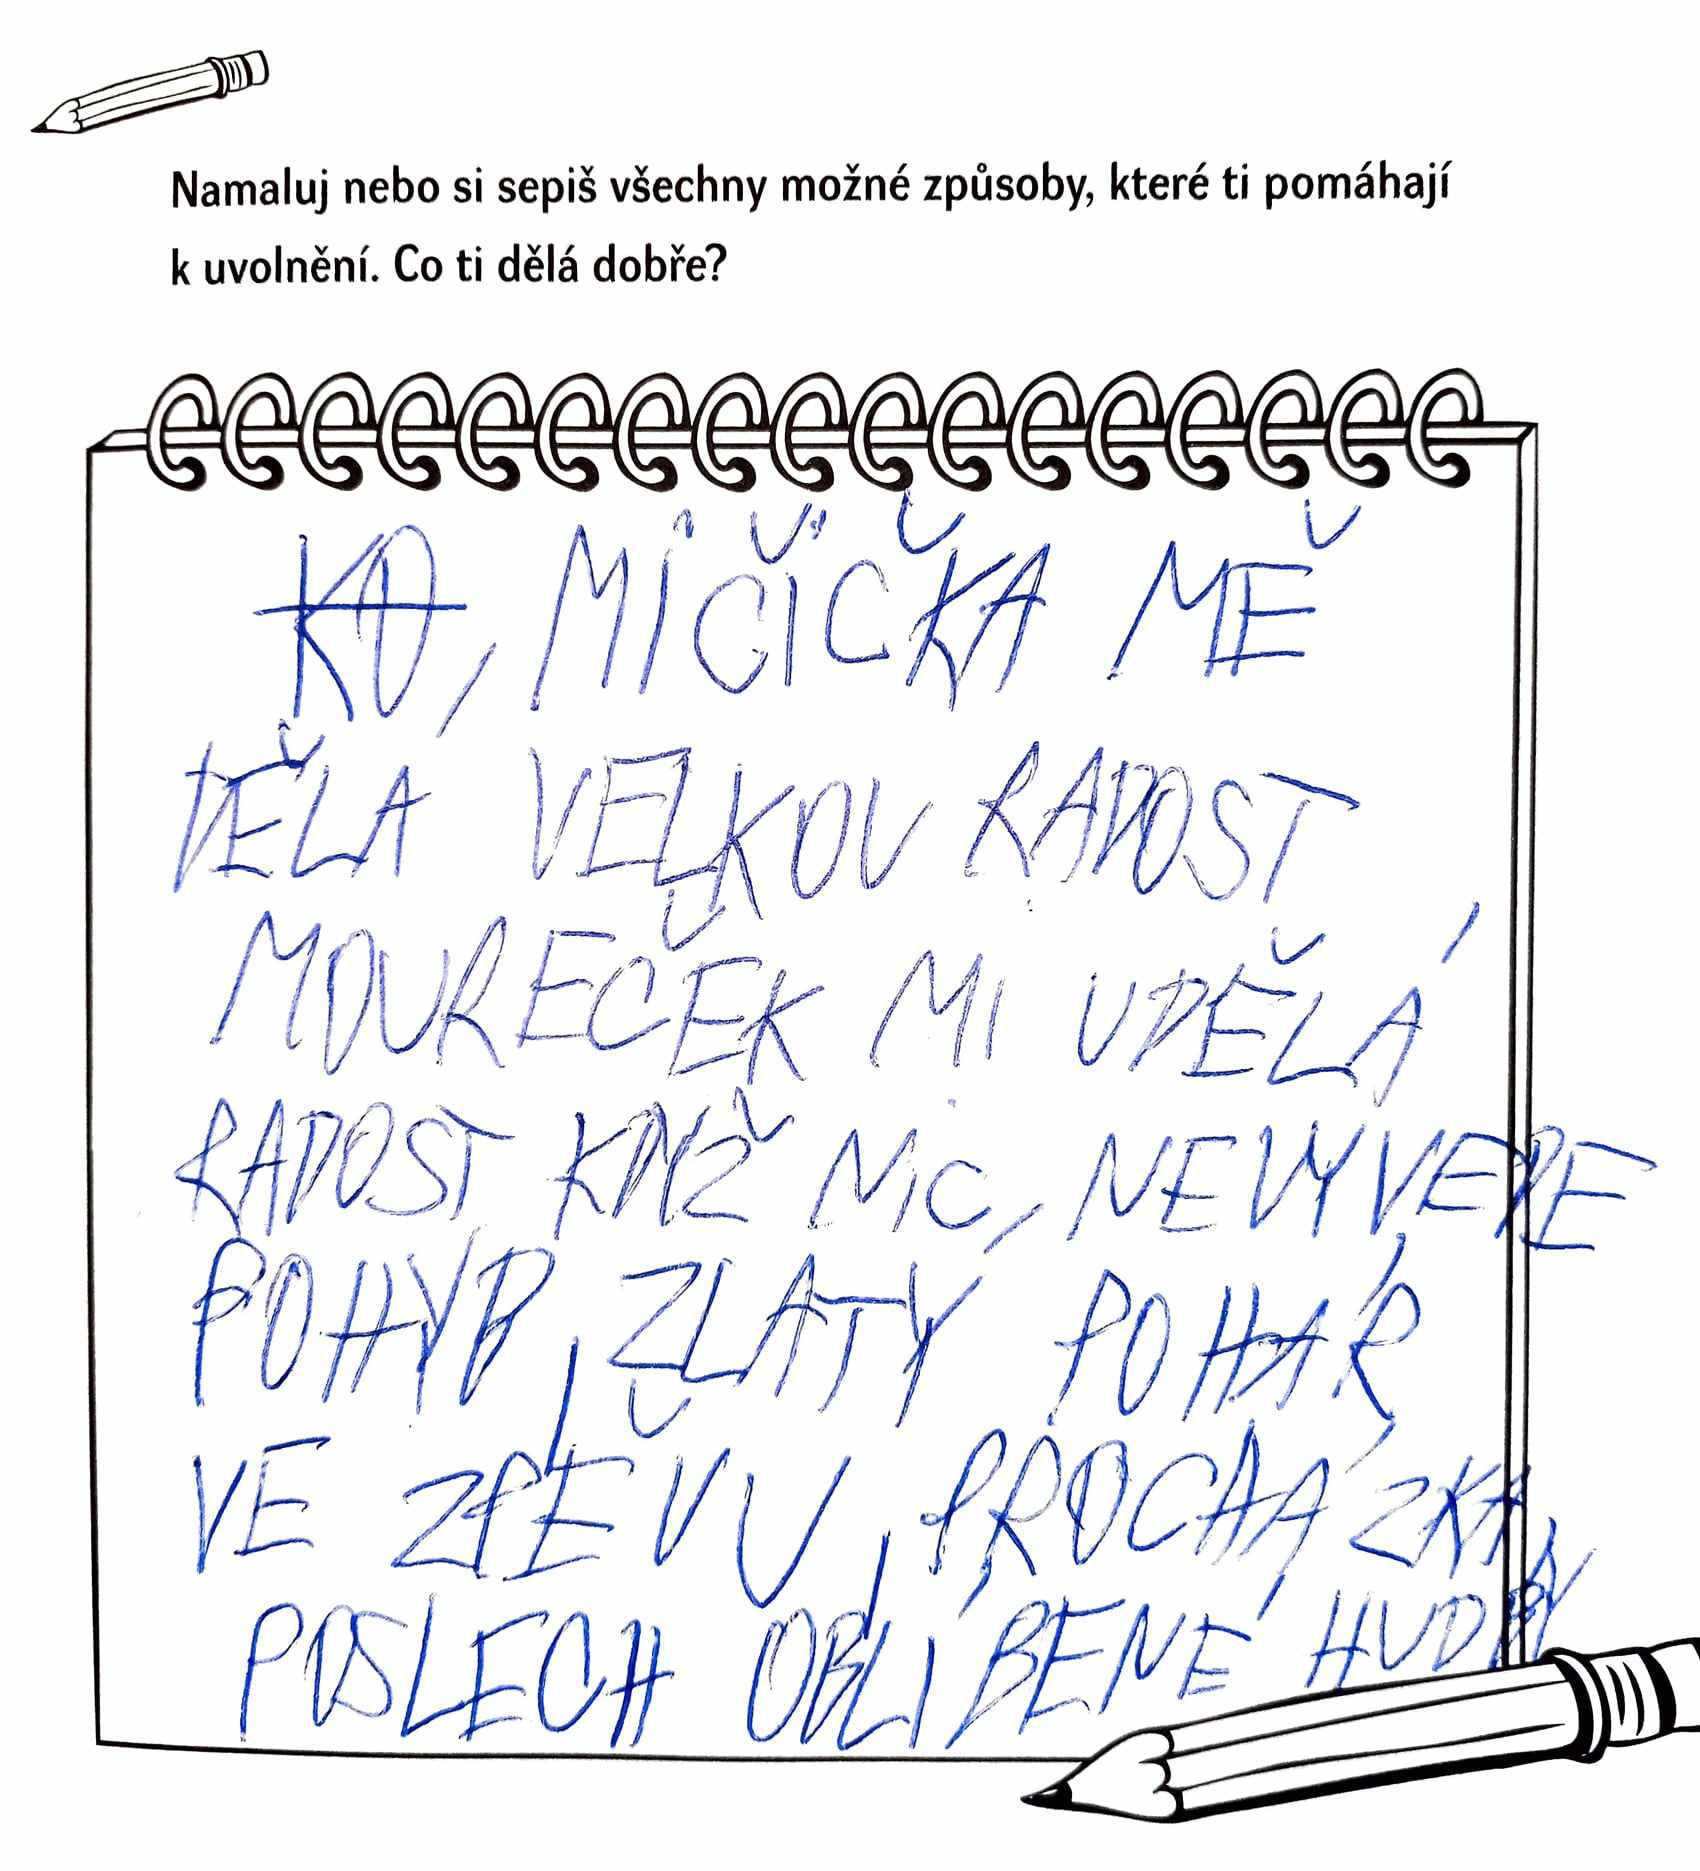 Namaluj nebo si sepiš všechny možné způsoby, které ti pomáhají
k uvolnění. Co ti dělá dobře?
KO, MÍČIČKA MĚ
DĚLA VELKOU RADOST,
MOUREČEK MI UDĚLÁ
RADOST KDYŽ NIC, NEVYVEDE
POHYB, ZLATY POHÁR
VE ZPĚVU, PROCHÁZKA,
POSLECH OBLÍBENÉ HUDBY